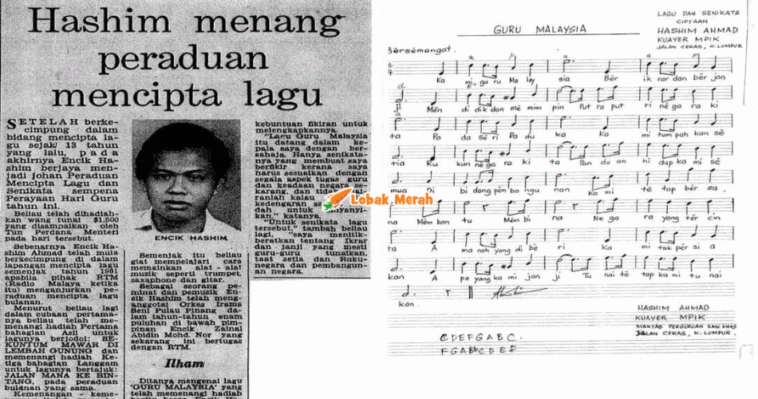 Hashim menang
peraduan
mencipta lagu
SETELAH berke-
cimpung dalam
bidang mencipta la-
gu sejak 13 tahun
yang lalu, pada
akhirnya Encik Ha-
shim berjaya men-
jadi johan Peraduan
Mencipta Lagu dan
Senikata sempena
Perayaan Hari Guru
tahun ini.
Beliau telah dihadiah-
kan wang tunai $1,500
yang disampaikan oleh
Tun Perdana Menteri
pada hari tersebut.
Sebenarnya Encik Ha-
shim Ahmad telah mula
berkecimpung di dalam
lapangan mencipta lagu
semenjak tahun 1961
apabila pihak RTM
(Radio Malaya ketika
itu) menganjurkan pe-
raduan mencipta lagu
bulanan.
Menurut beliau lagi
dalam cubaan pertama-
nya beliau telah me-
menangi hadiah Pertama
bahagian Asli untuk
lagunya berjodol: SE-
KUNTUM MAWAR DI
LEMBAH GUNUNG dan
memenangi hadiah Ke-
tiga bahagian Langgam
untuk lagunya bertajuk:
JALAN MANA KE BIN-
TANG, pada peraduan
bulanan yang sama.
Kemenangan - keme-
ENCIK HASHIM
Semenjak itu beliau
giat mempelajari cara
memainkan alat - alat
muzik seperti trumpet,
saxophone dan gitar.
Sebagai seorang pe-
minat dan pemuzik En-
cik Hashim telah meng-
anggotai Orkes Irama
Seni Pulau Pinang da-
lam tahun-tahun enam
puluhan di bawah pim-
pinan Encik Zainal
Abidin Mohd. Nor yang
sekarang ini bertugas
dengan RTM.
Ilham
Ditanya mengenai lagu
'GURU MALAYSIA' yang
telah memenangi hadiah
kebuntuan fikiran untuk
melengkapkannya.
"Lagu Guru Malaysia
itu datang dalam ke-
pala saya dengan ber-
sahaja. Hanya senikata-
nya yang membuat saya
berfikir kerana saya
harus sesuaikan dengan
segala aspek tugas guru
dan keadaan negara se-
karang, dan tidak
kedengaran
katanya.
"Untuk senikata lagu
tersebut," tambah beliau
lagi, "saya menitik-
beratkan tentang Ikrar
dan janji yang mesti
guru-guru tunaikan,
taat setia dan Ruku-
negara dan pembangun-
an negara.
Lobak Merah
GURU MALAYSIA
LAGU DAN SENIKATA
CIPTAAN
HASHIM AHMAD
KUAYER MPIK
JALAN CERAS, K. LUMPUR.
Bersemangat.
Ka mi guru Malay sia Ber ik rar dan ber jan
ji Men di dik dan mem pin Put ra put ri nega ra ki
ta Pa da seri Pa du ka Ka mi tum pah kan se
tia Ku kun nega ra ki ta Pan du an hi dup ka mi se
mua Di bi dang pem ba ngu nan Ka mi te tap ber sa
ma Mem ban tu Mem bi na Ne ga ra yang ter cin
ta A ma nah yang di be ri Ka mi tak per sia
kan A pa yang ka mi jan ji Tu nai te tap ka mi tu nai
kan.
HASHIM AHMAD
KUAYER MPIK
MAKTAB PERGURUAN ILMU KHAS
JALAN CERAS, K. LUMPUR.
C D E F G A B C.
F G A B C D E F